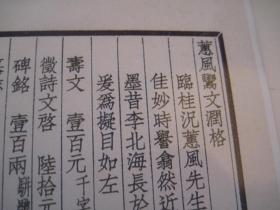 蕙風鬻文潤格
臨桂況蕙風先生
佳妙時譽翕然近
墨昔李北海長於
爰爲擬目如左
壽文 壹百元 千字
徵詩文啓 陸拾元
碑銘 壹百兩 駢體